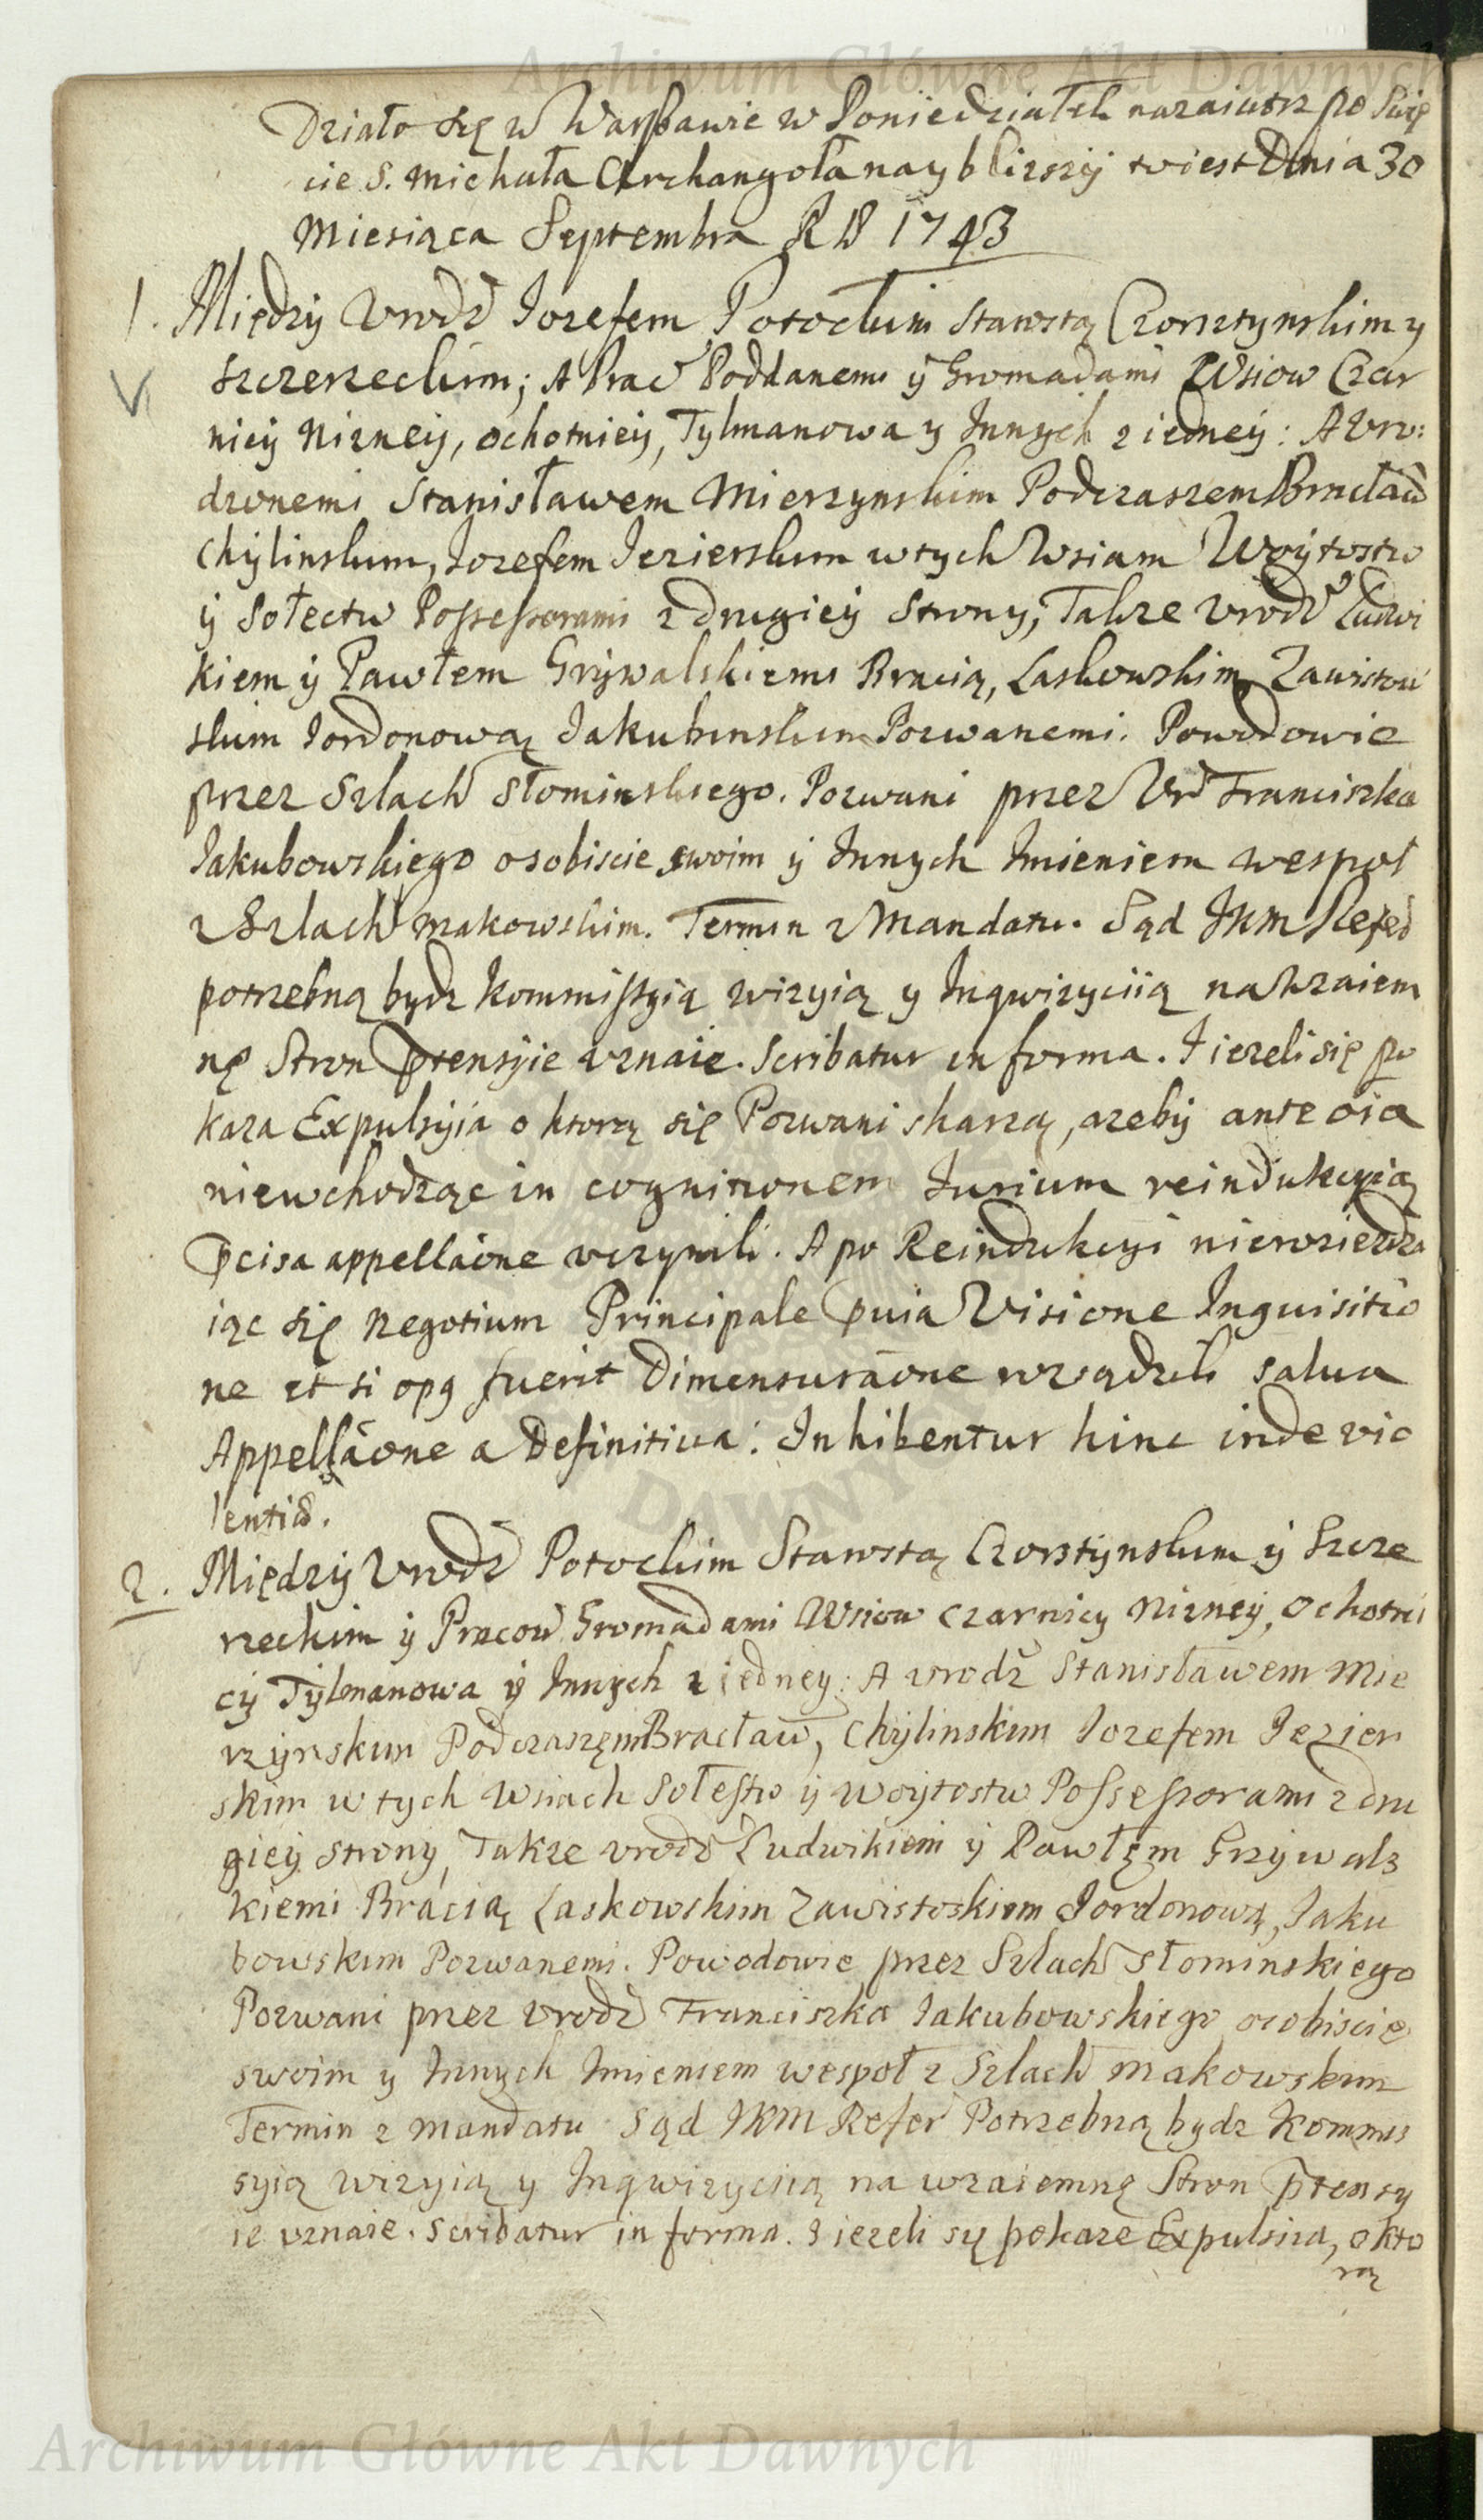 Archiwum Główne Akt Dawnych
Działo się w Warszawie w Poniedziałek nazaiutrz po Swię
cie S. Michała Archangoła nayblizszy to iest Dnia 30
Miesiąca Septembra R D 1743
1. Między Urodz Iozefem Potockim Starostą Czorsztynskim y
szczerzeckim; A Prac Poddanemi ÿ Gromadami Wsiow Czar
nieÿ Nizneÿ, Ochotnieÿ, Tylmanowa y Innych z iedneÿ: A Uro:
dzonemi Stanisławem Mierzynskim Podczaszem Bracław
Chÿlinskim, Iozefem Iezierskim w tych Wsiam Woÿtostw
ÿ Sołectw Possessorami z drugieÿ Strony, Takze Urodz Ludwi
kiem ÿ Pawłem Grÿwalskiemi Bracią, Laskowskim Zawistow
skim Iordonową Jakubinskim Pozwanemi. Powodowie
przez Szlach Słominskiego. Pozwani przez Ur Franciszka
Jakubowskiego osobiscie swoim ÿ Innych Imieniem wespoł
z Szlach Makowskim. Termin z Mandatu. Sąd IKM Refer
potrzebną bydz Kommissyią wizyią y Inqwizyciią na wzaiem
nę Stron ptensÿie uznaie. Scribatur in forma. I iezeli się po
kaza Expulsÿia o ktorą się Pozwani skarzą, azebÿ ante oia
niewchodząc in cognitionem Iurium reindukcyią
pcisa appellaone uczynili. A po Reindukcyi nieroziezdza
iąc się Negotium Principale puia Visione Inquisitio
ne et si opg fuerit Dimensuraone rozsądzili salua
Appellaone a Definitiua. Inhibentur hinc inde vio
lentia.
2. Międzÿ Urodz Potockim Starostą Czorstÿnskim ÿ Szcze
rzeckim ÿ Pracow Gromadami Wsiow Czarnieÿ Nizneÿ, Ochotni
cÿ Tÿlmanowa ÿ Innych z iedney: A urodz Stanisławem Mie
rzÿnskim Podczaszęm Bracław, Chÿlinskim Iozefem Iezier
skim w tych Wsiach Sołestw ÿ Woÿtostw Possessorami z dru
gieÿ Strony, Takze urodz Ludwikiem ÿ Pawłęm Grzÿwals
kiemi Bracią Laskowskim Zawistoskiem Iordonową, Jaku
bowskim Pozwanemi. Powodowie przez Szlach Słominskiego
Pozwani przez urodz Franciszka Jakubowskiego osobiscie
swoim y Innych Imieniem wespoł z Szlach Makowskim
Termin z Mandatu Sąd IKM Refer Potrzebną bydz Kommis
syią wizyią y Inqwizyciią na wzaiemnę Stron ptensy
ie uznaie. Scribatur in forma. I iezeli sę pokaze Expulsiia, o kto
rą
Archiwum Główne Akt Dawnych